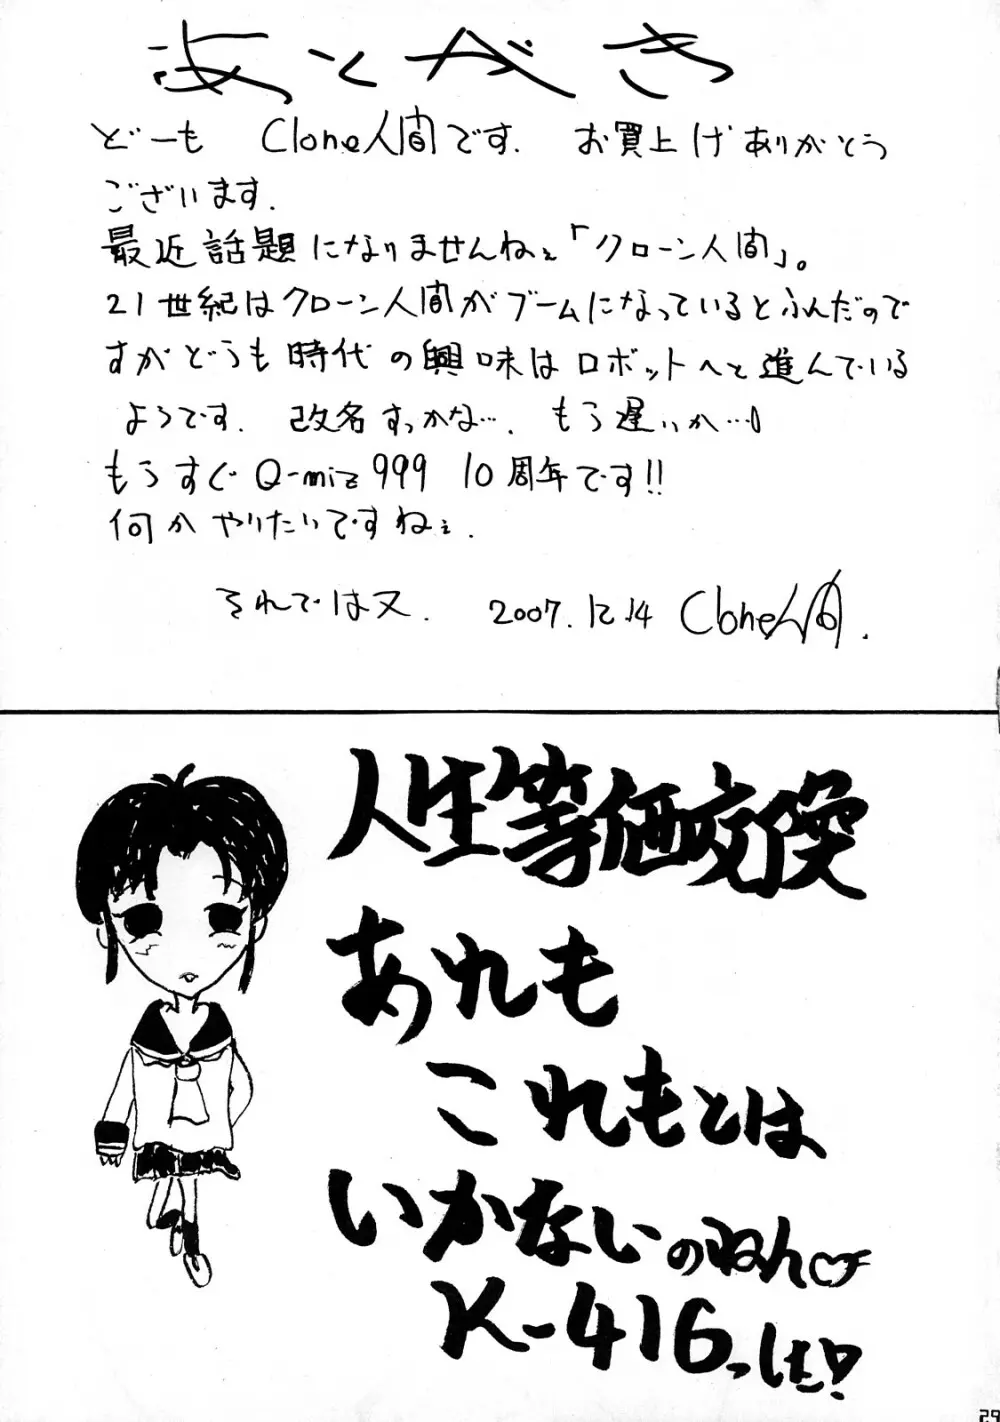 あとがき
どーも Clone人間です. お買上げありがとう
ございます.
最近話題になりませんねぇ「クローン人間」。
21世紀はクローン人間がブームになっているとふんだので
すがどうも時代の興味はロボットへと進んでいる
ようです. 改名すっかな…. もう遅いか…
もうすぐ Q-miz 999 10周年です!!
何かやりたいですねぇ.
それでは又. 2007.12.14 Clone人間.
人生等価交換
あれも
これもとは
いかないのねん♡
K-416っした!
29